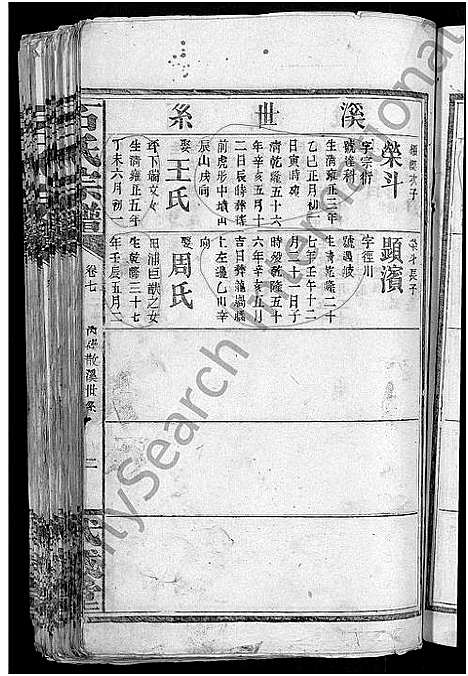 溪世系
榮斗
字宗衍
號達利
生清雍正三年
乙巳正月初一
日寅時歿
清乾隆五十六
年辛亥五月十
二日辰時葬
前虎形中墳山
辰山戌向
娶王氏
坪下瑞文女
生清雍正五年
丁未六月初一
顯濱
榮斗長子
字徑川
號週波
生清乾隆二十
七年壬午十二
月二十一日子
時歿乾隆五十
六年辛亥五月
吉日葬龍塘
上左邊乙山辛
向
娶周氏
田浦巨猷之女
生乾隆三十七
年壬辰五月二
石氏宗譜
卷七
溪世系
二
FamilySearch International